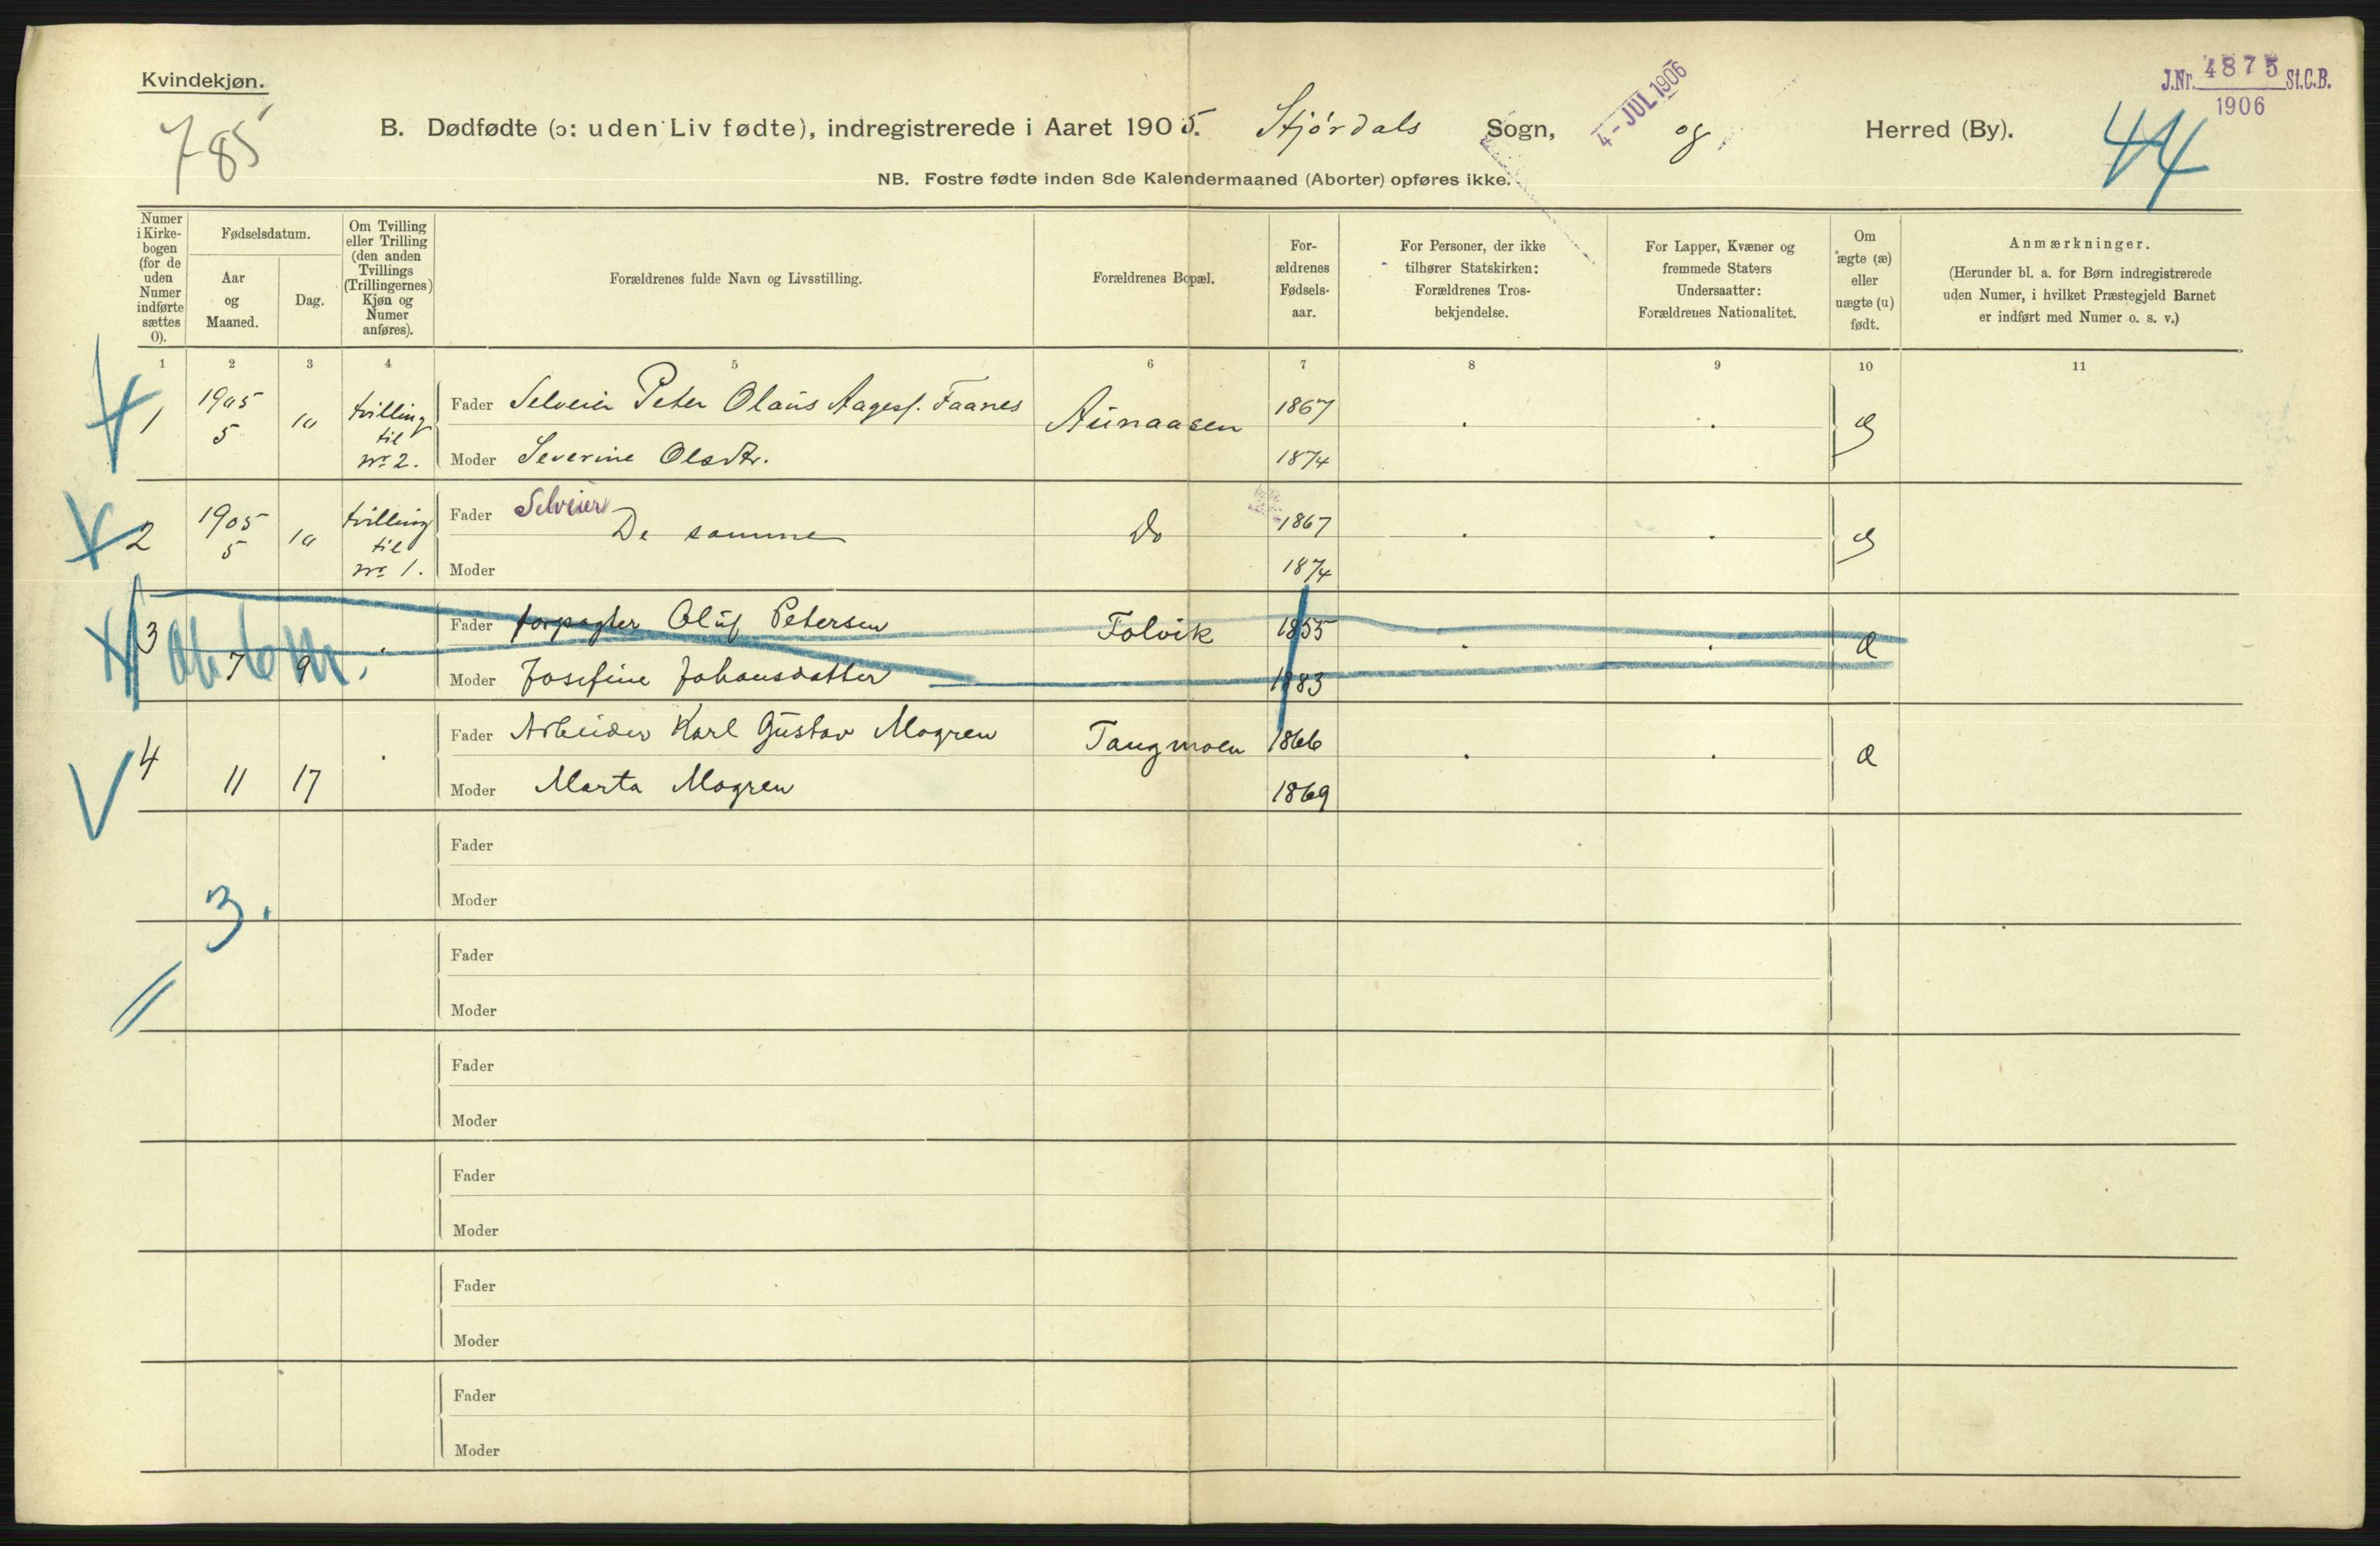 Kvindekjøn.
785
J.Nr. 4875 St.C.B.
1906
44
B. Dødfødte (ɔ: uden Liv fødte), indregistrerede i Aaret 1905. Stjørdals Sogn, og Herred (By).
4-JUL 1906
NB. Fostre fødte inden 8de Kalendermaaned (Aborter) opføres ikke.
Numer
i Kirke-
bogen
(for de
uden
Numer
indførte
sættes
0).
Fødselsdatum.
Aar
og
Maaned.
Dag.
Om Tvilling
eller Trilling
(den anden
Tvillings
(Trillingernes)
Kjøn og
Numer
anføres).
Forældrenes fulde Navn og Livsstilling.
Forældrenes Bopæl.
For-
ældrenes
Fødsels-
aar.
For Personer, der ikke
tilhører Statskirken:
Forældrenes Tros-
bekjendelse.
For Lapper, Kvæner og
fremmede Staters
Undersaatter:
Forældrenes Nationalitet.
Om
ægte (æ)
eller
uægte (u)
født.
Anmærkninger.
(Herunder bl. a. for Børn indregistrerede
uden Numer, i hvilket Præstegjeld Barnet
er indført med Numer o. s. v.)
1 2 3 4 5 6 7 8 9 10 11
1 1905 5 10 tvilling til nr. 2.
Fader Selveier Peter Olaus Aagesf. Faanes Aunaasen 1867 æ
Moder Severine Olsdtr. 1874
2 1905 5 10 tvilling til nr. 1.
Fader Selveier De samme Do 1867 æ
Moder 1874
3 7 9
Fader forpagter Oluf Petersen Folvik 1855 æ
Moder Josefine Johansdatter 1883
4 11 17
Fader Arbeider Karl Gustav Mogren Tangmoen 1866 æ
Moder Marta Mogren 1869
Fader
Moder
3.
Fader
Moder
Fader
Moder
Fader
Moder
Fader
Moder
Fader
Moder